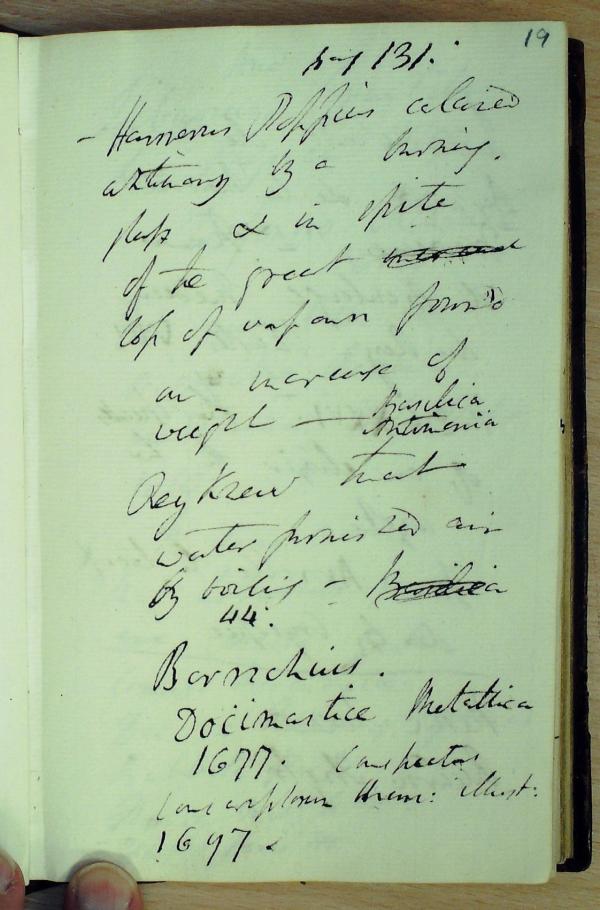 19
pag 131.
– Hamerus Poppius calcined
antimony by a burning.
glass & in spite
of the great
loss of vapour found
an increase of
weight — Basilica
Antimonia
Rey Knew that
water furnished air
by boiling – Basilica
44.
Borrichius.
Docimastice Metallica
1677. Conspectus
illust:
1697.